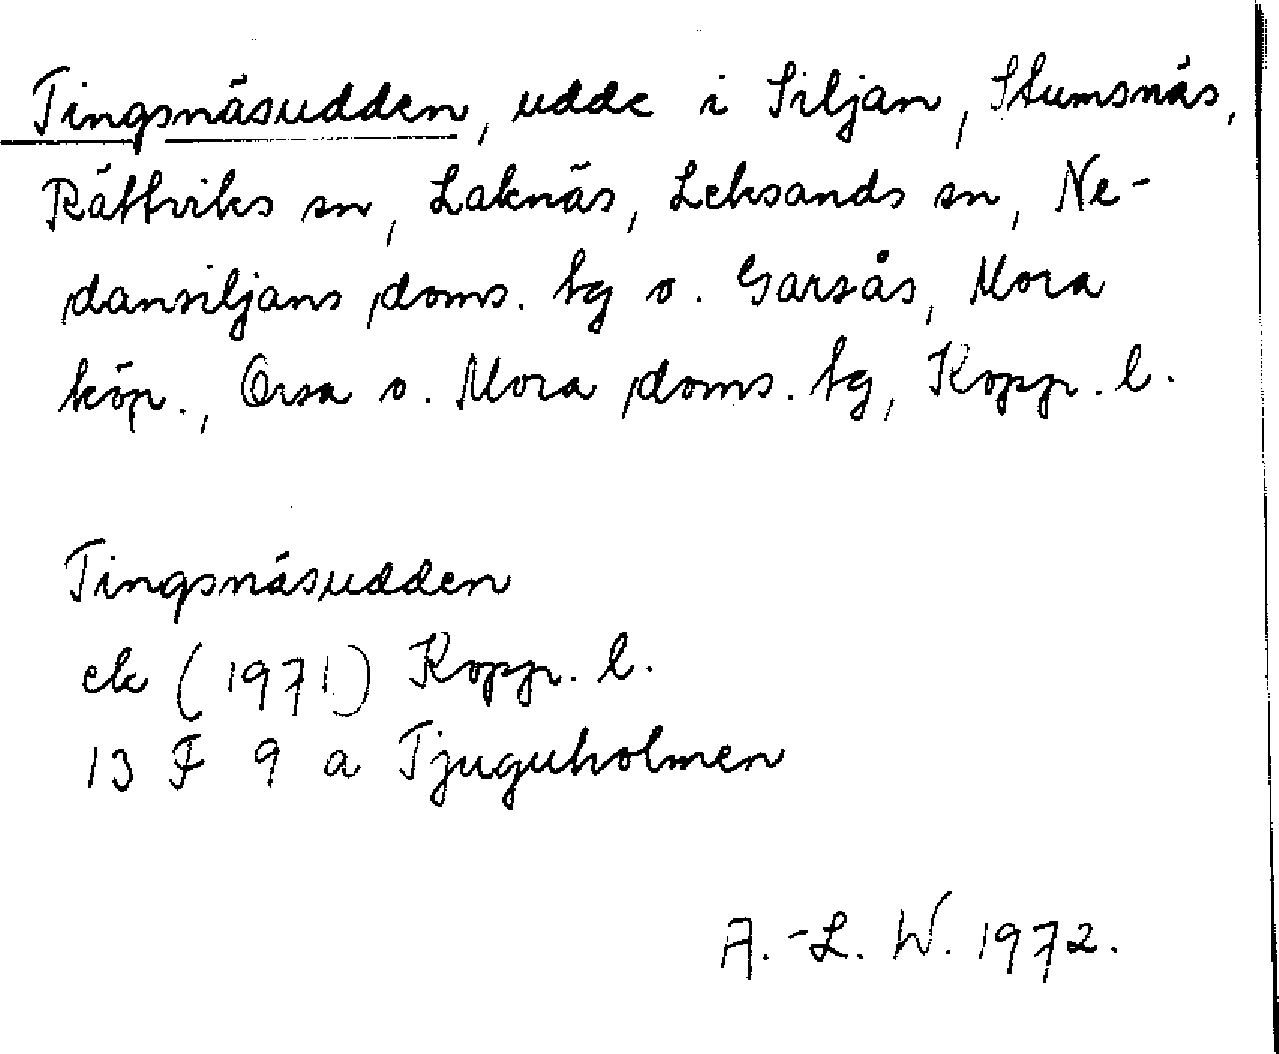 Tingsnäsudden, udde i Siljan, Stumsnäs,
Rättviks sn, Laknäs, Leksands sn, Ne-
dansiljans doms. tg o. Garsås, Mora
köp., Orsa o. Mora doms. tg, Kopp. l.
Tingsnäsudden
ek (1971) Kopp. l.
13 F 9 a Tjuguholmen
A.-L. W. 1972.